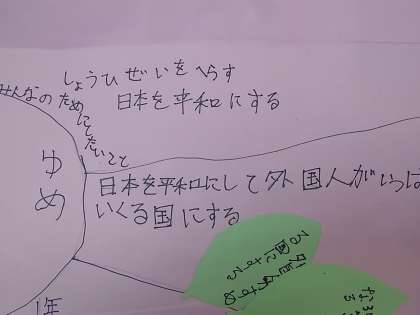 しょうひぜいをへらす
日本を平和にする
みんなのためにしたいこと
ゆめ
日本を平和にして外国人がいっぱ
いくる国にする
1年